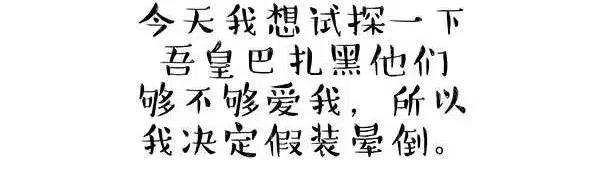 今天我想试探一下
吾皇巴扎黑他们
够不够爱我，所以
我决定假装晕倒。